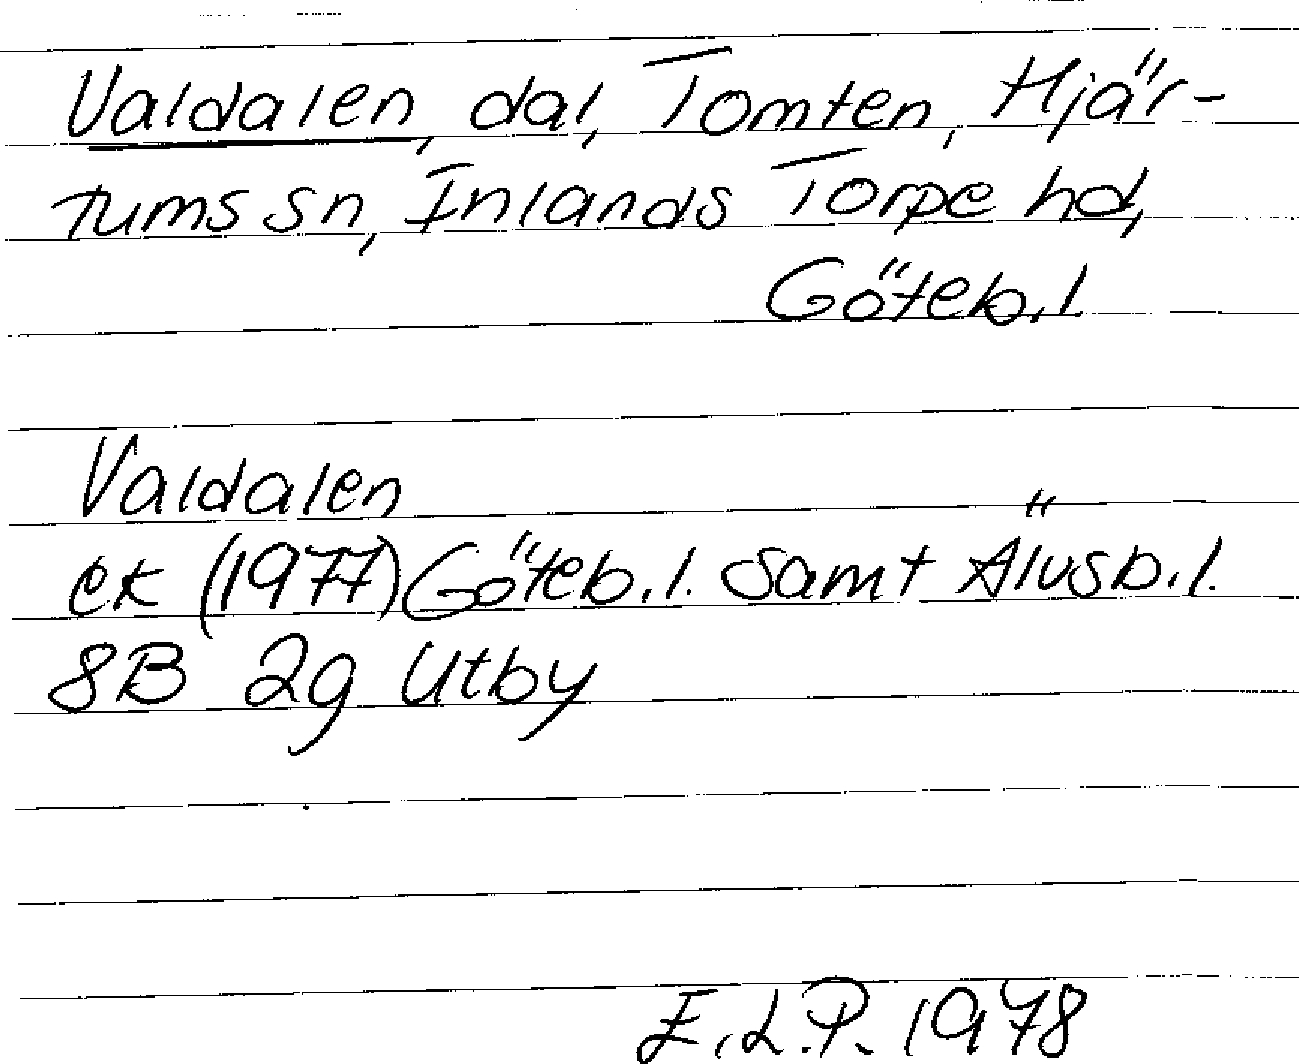 Valdalen, dal, Tomten, Hjär-
tums sn, Inlands Torpe hd,
Göteb.l
Valdalen
ek (1977) Göteb.l. samt Älvsb.l.
8B 2g Utby
E.L.P. 1978